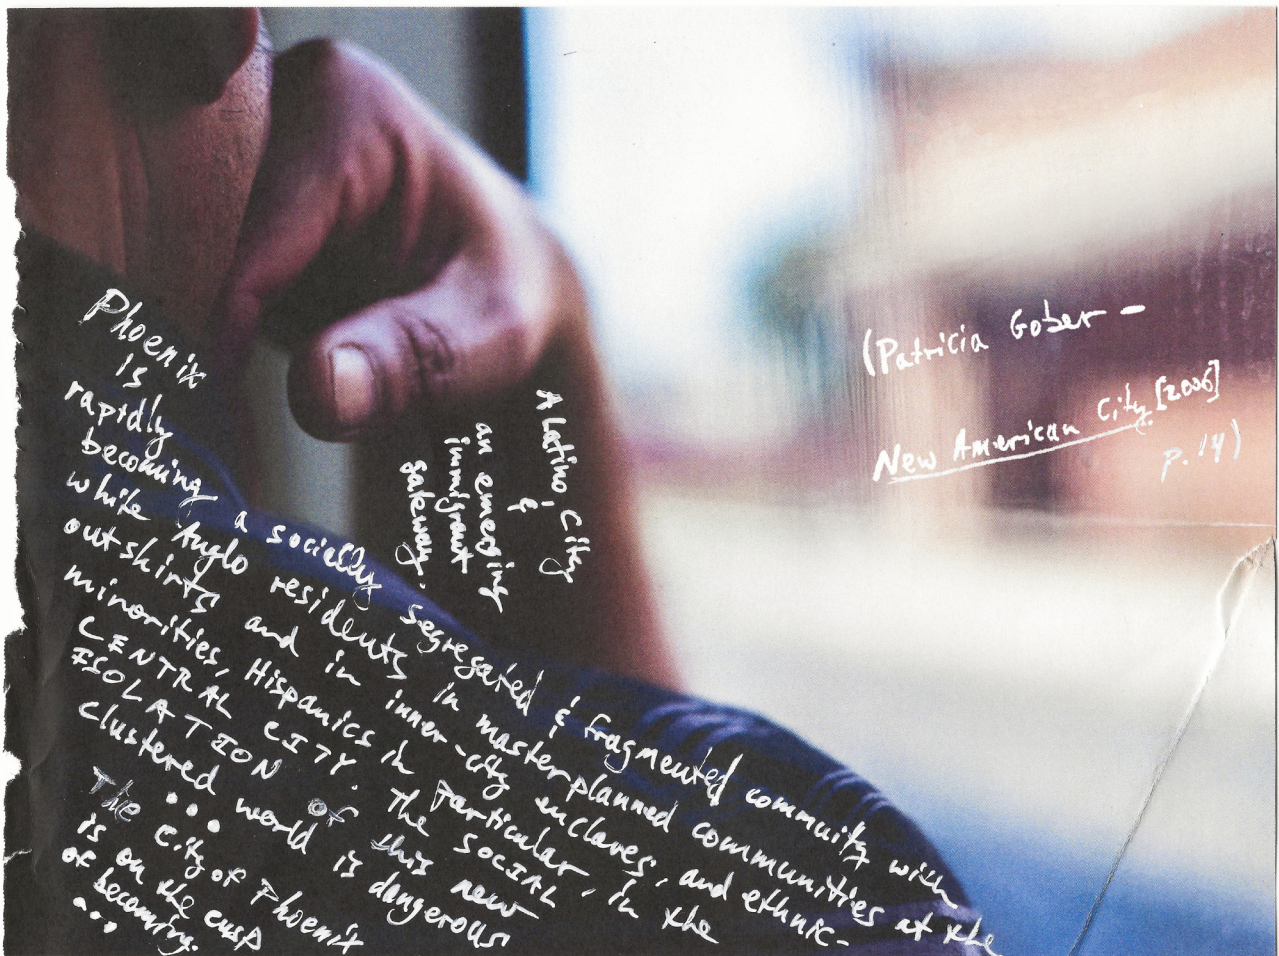 Phoenix
is
rapidly
becoming a socially segregated & fragmented commuity with
white Anglo residents in masterplanned communities at the
outskirts and in inner-city enclaves, and ethnic-
minorities, Hispanics in particular, in the
CENTRAL CITY. The SOCIAL
ISOLATION of this new
clustered world is dangerous
...
The City of Phoenix
is on the cusp
of becoming.
...
A Latino, City
&
an emerging
immigrant
gateway.
(Patricia Gober -
New American City [2006]
p. 14)